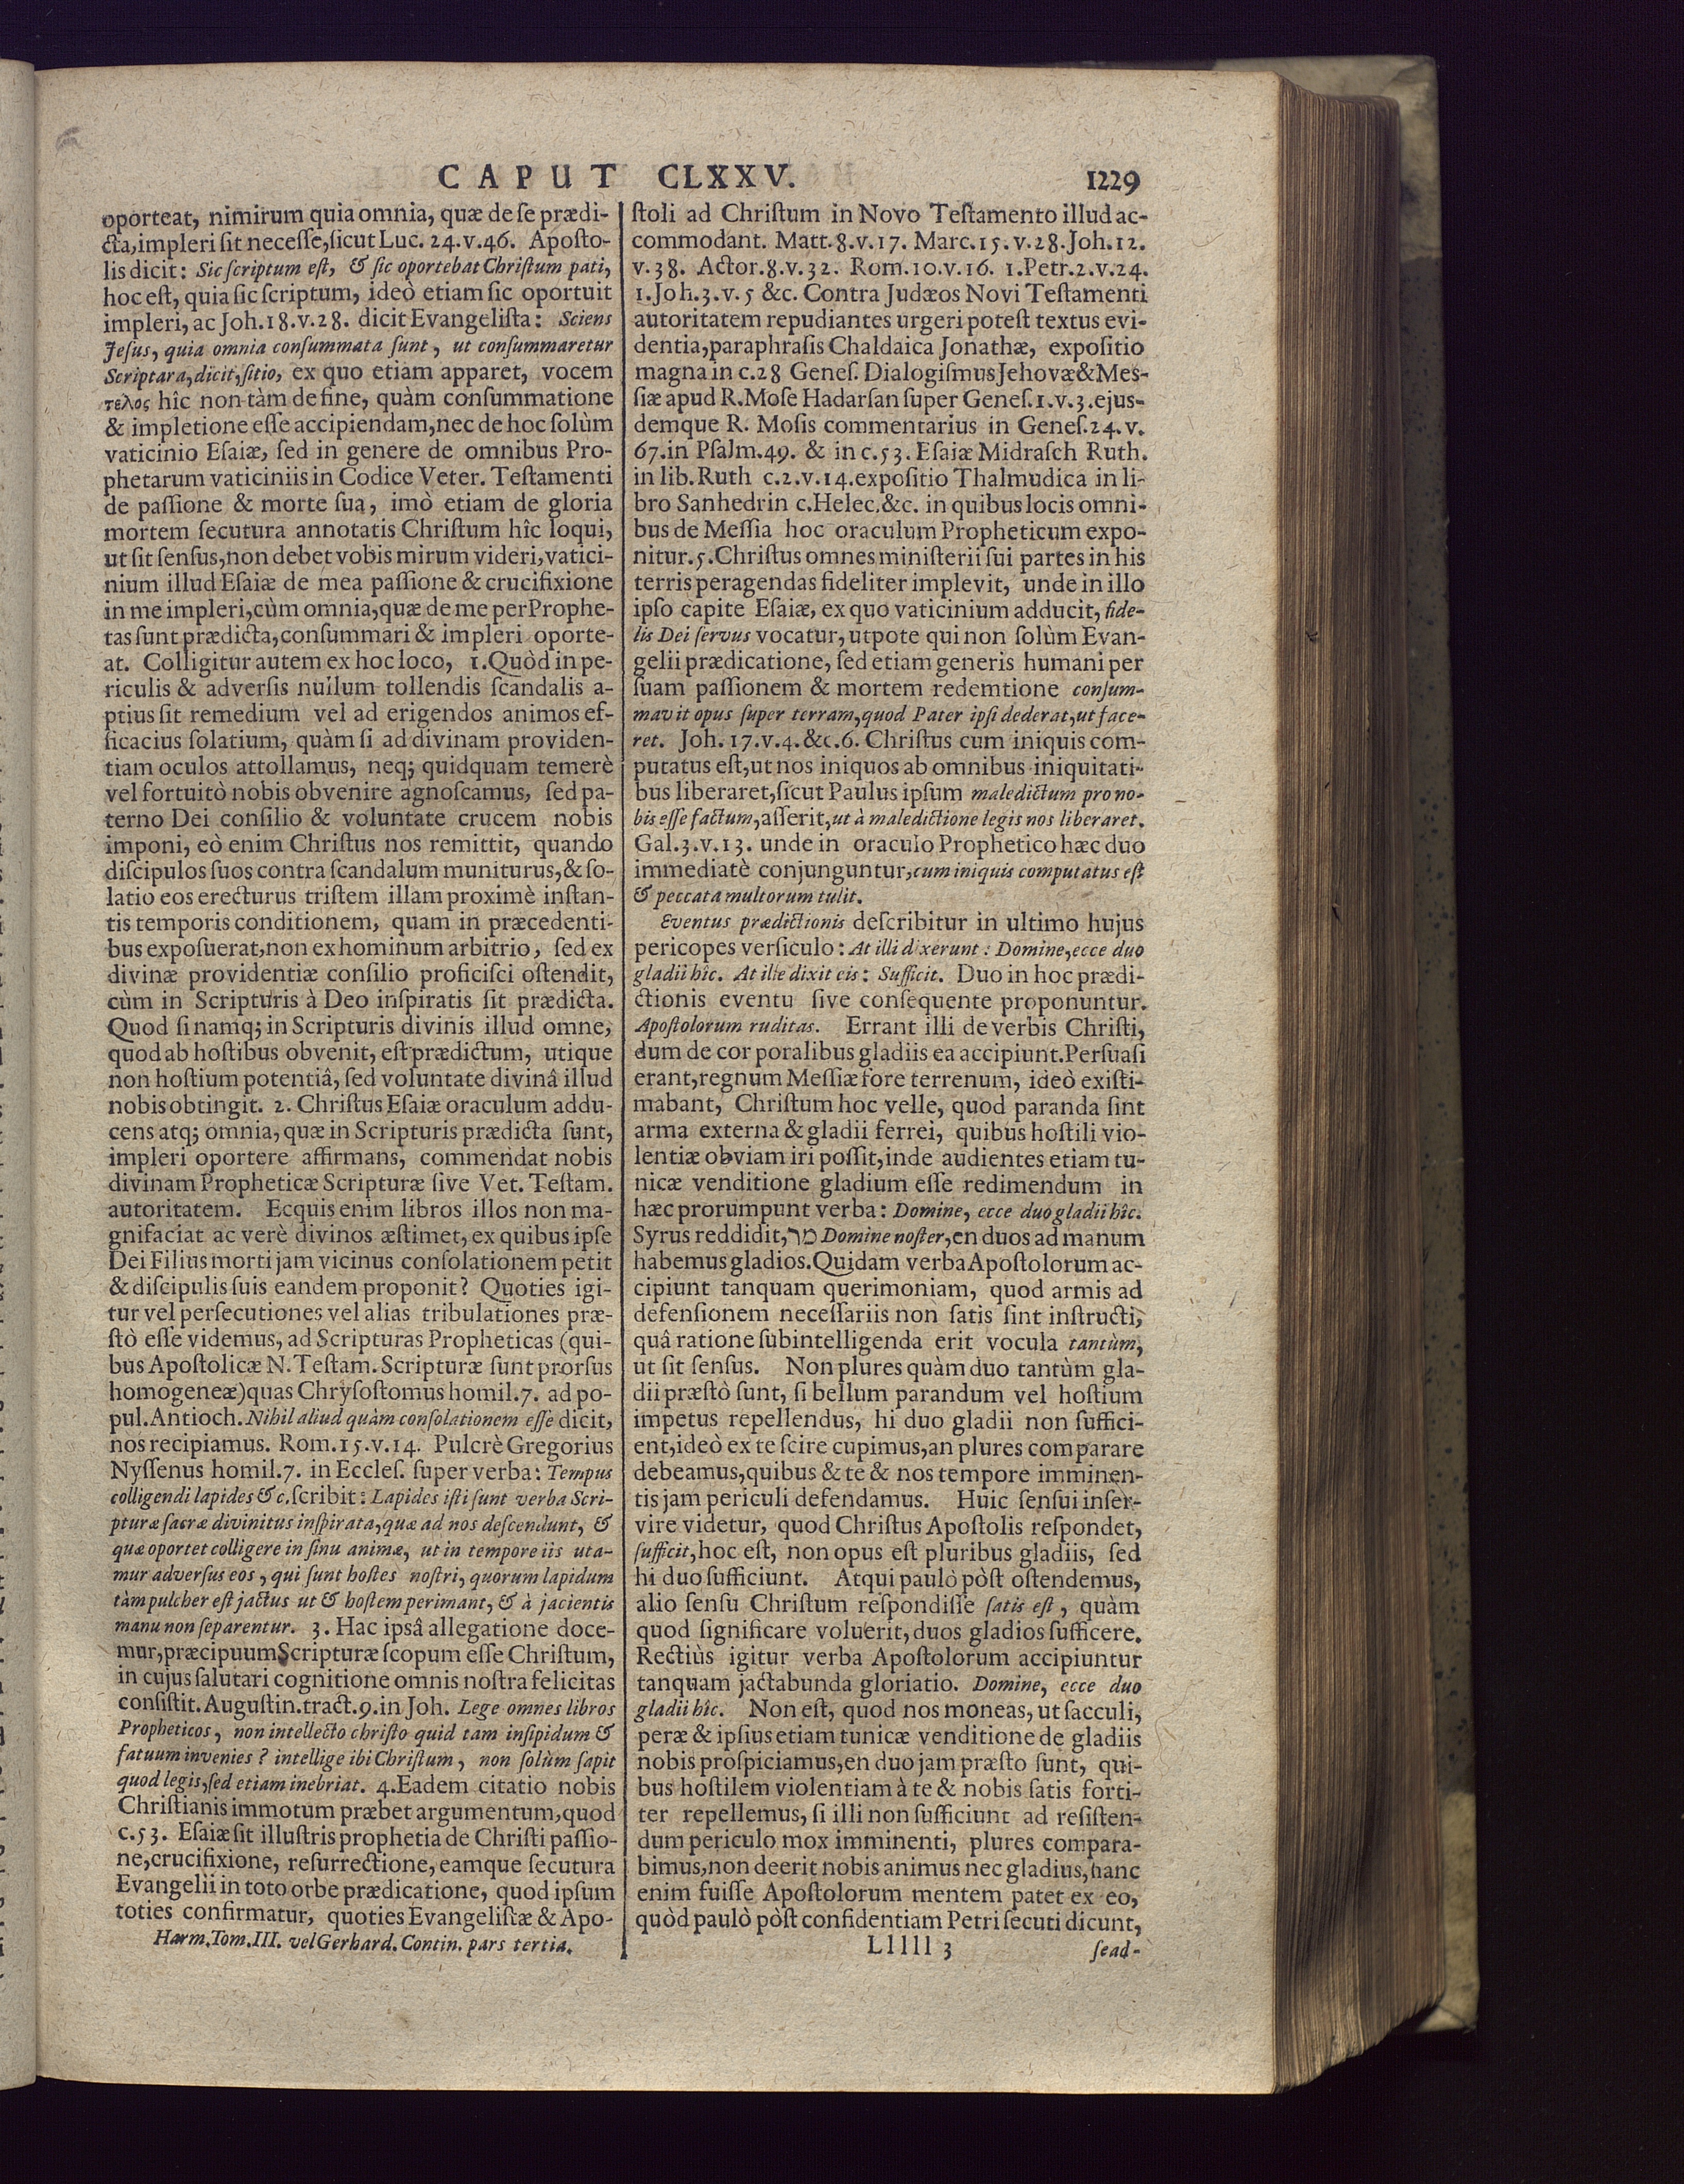 CAPUT CLXXV. 1229
oporteat, nimirum quia omnia, quæ de ſe prædi-
cta, impleri ſit neceſſe, ſicut Luc. 24.v.46. Apoſto-
lis dicit: Sic ſcriptum eſt, & ſic oportebat Chriſtum pati,
hoc eſt, quia ſic ſcriptum, ideò etiam ſic oportuit
impleri, ac Joh.18.v.28. dicit Evangeliſta: Sciens
Jeſus, quia omnia conſummata ſunt, ut conſummaretur
Scriptara, dicit, ſitio, ex quo etiam apparet, vocem
τελος hîc non tàm de fine, quàm conſummatione
& impletione eſſe accipiendam, nec de hoc ſolùm
vaticinio Eſaiæ, ſed in genere de omnibus Pro-
phetarum vaticiniis in Codice Veter. Teſtamenti
de paſſione & morte ſua, imò etiam de gloria
mortem ſecutura annotatis Chriſtum hîc loqui,
ut ſit ſenſus, non debet vobis mirum videri, vatici-
nium illud Eſaiæ de mea paſſione & crucifixione
in me impleri, cùm omnia, quæ de me per Prophe-
tas ſunt prædicta, conſummari & impleri oporte-
at. Colligitur autem ex hoc loco, 1. Quòd in pe-
riculis & adverſis nullum tollendis ſcandalis a-
ptius ſit remedium vel ad erigendos animos ef-
ficacius ſolatium, quàm ſi ad divinam providen-
tiam oculos attollamus, neq; quidquam temerè
vel fortuitò nobis obvenire agnoſcamus, ſed pa-
terno Dei conſilio & voluntate crucem nobis
imponi, eò enim Chriſtus nos remittit, quando
diſcipulos ſuos contra ſcandalum muniturus, & ſo-
latio eos erecturus triſtem illam proximè inſtan-
tis temporis conditionem, quam in præcedenti-
bus expoſuerat, non ex hominum arbitrio, ſed ex
divinæ providentiæ conſilio proficiſci oſtendit,
cùm in Scripturis à Deo inſpiratis ſit prædicta.
Quod ſi namq; in Scripturis divinis illud omne,
quod ab hoſtibus obvenit, eſt prædictum, utique
non hoſtium potentiâ, ſed voluntate divinâ illud
nobis obtingit. 2. Chriſtus Eſaiæ oraculum addu-
cens atq; omnia, quæ in Scripturis prædicta ſunt,
impleri oportere affirmans, commendat nobis
divinam Propheticæ Scripturæ ſive Vet. Teſtam.
autoritatem. Ecquis enim libros illos non ma-
gnifaciat ac verè divinos æſtimet, ex quibus ipſe
Dei Filius morti jam vicinus conſolationem petit
& diſcipulis ſuis eandem proponit? Quoties igi-
tur vel perſecutiones vel alias tribulationes præ-
ſtò eſſe videmus, ad Scripturas Propheticas (qui-
bus Apoſtolicæ N. Teſtam. Scripturæ ſunt prorſus
homogeneæ) quas Chryſoſtomus homil.7. ad po-
pul. Antioch. Nihil aliud quàm conſolationem eſſe dicit,
nos recipiamus. Rom.15.v.14. Pulcrè Gregorius
Nyſſenus homil.7. in Eccleſ. ſuper verba: Tempus
colligendi lapides & c. ſcribit: Lapides iſti ſunt verba Scri-
pturæ ſacræ divinitus inſpirata, quæ ad nos deſcendunt, &
quæ oportet colligere in ſinu animæ, ut in tempore iis uta-
mur adverſus eos, qui ſunt hoſtes noſtri, quorum lapidum
tàm pulcher eſt jactus ut & hoſtem perimant, & à jacientis
manu non ſeparentur. 3. Hac ipsâ allegatione doce-
mur, præcipuum Scripturæ ſcopum eſſe Chriſtum,
in cujus ſalutari cognitione omnis noſtra felicitas
conſiſtit. Auguſtin. tract.9. in Joh. Lege omnes libros
Propheticos, non intellecto chriſto quid tam inſipidum &
fatuum invenies? intellige ibi Chriſtum, non ſolùm ſapit
quod legis, ſed etiam inebriat. 4. Eadem citatio nobis
Chriſtianis immotum præbet argumentum, quod
c.53. Eſaiæ ſit illuſtris prophetia de Chriſti paſſio-
ne, crucifixione, reſurrectione, eamque ſecutura
Evangelii in toto orbe prædicatione, quod ipſum
toties confirmatur, quoties Evangeliſtæ & Apo-
Harm. Tom. III. vel Gerhard. Contin. pars tertia.
ſtoli ad Chriſtum in Novo Teſtamento illud ac-
commodant. Matt.8.v.17. Marc.15.v.28. Joh.12.
v.38. Actor.8.v.32. Rom.10.v.16. 1.Petr.2.v.24.
1.Joh.3.v.5 &c. Contra Judæos Novi Teſtamenti
autoritatem repudiantes urgeri poteſt textus evi-
dentia, paraphraſis Chaldaica Jonathæ, expoſitio
magna in c.28 Geneſ. Dialogiſmus Jehovæ & Meſ-
ſiæ apud R. Moſe Hadarſan ſuper Geneſ.1.v.3. ejus-
demque R. Moſis commentarius in Geneſ.24.v.
67. in Pſalm.49. & in c.53. Eſaiæ Midraſch Ruth.
in lib. Ruth c.2.v.14. expoſitio Thalmudica in li-
bro Sanhedrin c. Helec, &c. in quibus locis omni-
bus de Meſſia hoc oraculum Propheticum expo-
nitur. 5. Chriſtus omnes miniſterii ſui partes in his
terris peragendas fideliter implevit, unde in illo
ipſo capite Eſaiæ, ex quo vaticinium adducit, fide-
lis Dei ſervus vocatur, utpote qui non ſolùm Evan-
gelii prædicatione, ſed etiam generis humani per
ſuam paſſionem & mortem redemtione conſum-
mavit opus ſuper terram, quod Pater ipſi dederat, ut face-
ret. Joh.17.v.4. &c. 6. Chriſtus cum iniquis com-
putatus eſt, ut nos iniquos ab omnibus iniquitati-
bus liberaret, ſicut Paulus ipſum maledictum pro no-
bis eſſe factum, aſſerit, ut à maledictione legis nos liberaret.
Gal.3.v.13. unde in oraculo Prophetico hæc duo
immediatè conjunguntur, cum iniquis computatus eſt
& peccata multorum tulit.
Eventus prædictionis deſcribitur in ultimo hujus
pericopes verſiculo: At illi dixerunt: Domine, ecce duo
gladii hîc. At ille dixit eis: Sufficit. Duo in hoc prædi-
ctionis eventu ſive conſequente proponuntur.
Apoſtolorum ruditas. Errant illi de verbis Chriſti,
dum de corporalibus gladiis ea accipiunt. Perſuaſi
erant, regnum Meſſiæ fore terrenum, ideò exiſti-
mabant, Chriſtum hoc velle, quod paranda ſint
arma externa & gladii ferrei, quibus hoſtili vio-
lentiæ obviam iri poſſit, inde audientes etiam tu-
nicæ venditione gladium eſſe redimendum in
hæc prorumpunt verba: Domine, ecce duo gladii hîc.
Syrus reddidit, מר Domine noſter, en duos ad manum
habemus gladios. Quidam verba Apoſtolorum ac-
cipiunt tanquam querimoniam, quod armis ad
defenſionem neceſſariis non ſatis ſint inſtructi,
quâ ratione ſubintelligenda erit vocula tantùm,
ut ſit ſenſus. Non plures quàm duo tantùm gla-
dii præſtò ſunt, ſi bellum parandum vel hoſtium
impetus repellendus, hi duo gladii non ſuffici-
ent, ideò ex te ſcire cupimus, an plures comparare
debeamus, quibus & te & nos tempore imminen-
tis jam periculi defendamus. Huic ſenſui inſer-
vire videtur, quod Chriſtus Apoſtolis reſpondet,
ſufficit, hoc eſt, non opus eſt pluribus gladiis, ſed
hi duo ſufficiunt. Atqui paulò pòſt oſtendemus,
alio ſenſu Chriſtum reſpondiſſe ſatis eſt, quàm
quod ſignificare voluerit, duos gladios ſufficere.
Rectiùs igitur verba Apoſtolorum accipiuntur
tanquam jactabunda gloriatio. Domine, ecce duo
gladii hîc. Non eſt, quod nos moneas, ut ſacculi,
peræ & ipſius etiam tunicæ venditione de gladiis
nobis proſpiciamus, en duo jam præſto ſunt, qui-
bus hoſtilem violentiam à te & nobis ſatis forti-
ter repellemus, ſi illi non ſufficiunt ad reſiſten-
dum periculo mox imminenti, plures compara-
bimus, non deerit nobis animus nec gladius, hanc
enim fuiſſe Apoſtolorum mentem patet ex eo,
quòd paulò pòſt confidentiam Petri ſecuti dicunt,
Lllll 3 ſead-